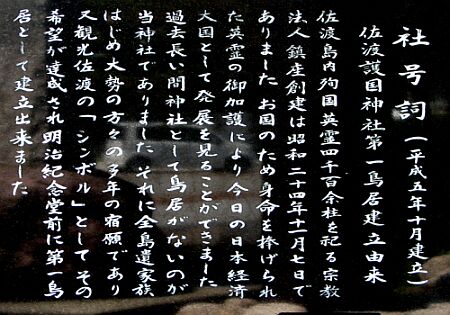 社号詞（平成五年十月建立）
佐渡護国神社第一鳥居建立由来
佐渡島内殉国英霊四千百余柱を祀る宗教
法人鎮座創建は昭和二十四年十一月七日で
ありました お国のため身命を捧げられ
た英霊の御加護により今日の日本経済
大国として発展を見ることができました
過去長い間神社として鳥居がないのが
当神社でありました それに全島遺家族
はじめ大勢の方々の多年の宿願であり
又観光佐渡の「シンボル」として その
希望が達成され明治紀念堂前に第一鳥
居として建立出来ました